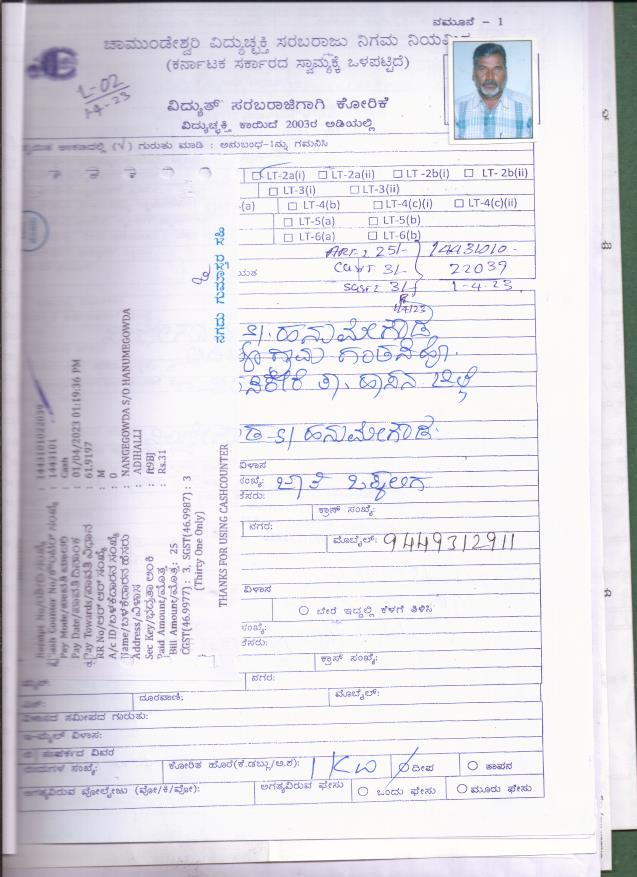 ನಮೂನೆ - 1
ಚಾಮುಂಡೇಶ್ವರಿ ವಿದ್ಯುಚ್ಛಕ್ತಿ ಸರಬರಾಜು ನಿಗಮ
(ಕರ್ನಾಟಕ ಸರ್ಕಾರದ ಸ್ವಾಮ್ಯಕ್ಕೆ ಒಳಪಟ್ಟಿದೆ)
L-02
1-4-23
ವಿದ್ಯುತ್ ಸರಬರಾಜಿಗಾಗಿ ಕೋರಿಕೆ
ವಿದ್ಯುಚ್ಛಕ್ತಿ ಕಾಯಿದೆ 2003ರ ಅಡಿಯಲ್ಲಿ
(√) ಗುರುತು ಮಾಡಿ : ಅನುಬಂಧ-1ನ್ನು ಗಮನಿಸಿ
LT-2a(i) LT-2a(ii) LT-2b(i) LT-2b(ii)
LT-3(i) LT-3(ii)
(a) LT-4(b) LT-4(c)(i) LT-4(c)(ii)
LT-5(a) LT-5(b)
LT-6(a) LT-6(b)
25/- 14431010-
3/- 22039
3/- 1-4-23
1/4/23
S/. ಹನುಮೇಗೌಡ
S/ ಹನುಮೇಗೌಡ
ವಿಳಾಸ
ಸಂಖ್ಯೆ:
ಕೆಸರು:
ಕ್ರಾಸ್ ಸಂಖ್ಯೆ:
ನಗರ:
ಮೊಬೈಲ್: 9449312911
ವಿಳಾಸ
ಬೇರೆ ಇದ್ದಲ್ಲಿ ಕೆಳಗೆ ತಿಳಿಸಿ
ಸಂಖ್ಯೆ:
ಕೆಸರು:
ಕ್ರಾಸ್ ಸಂಖ್ಯೆ:
ನಗರ:
ದೂರವಾಣಿ: ಮೊಬೈಲ್:
ವಿಳಾಸದ ಸಮೀಪದ ಗುರುತು:
ಇ-ಮೈಲ್ ವಿಳಾಸ:
ಸಂಪರ್ಕದ ವಿವರ
ಸಂಖ್ಯೆ: ಕೋರಿಕೆ ಹೊರೆ(ಕೆ.ಡಬ್ಲ್ಯು/ಅ.ಶ): 1 KW ದೀಪ ಕಾಪನ
ಅಗತ್ಯವಿರುವ ವೋಲ್ಟೇಜು (ವೋ/ಕಿ/ವೋ): ಅಗತ್ಯವಿರುವ ಫೇಸು ಒಂದು ಫೇಸು ಮೂರು ಫೇಸು
Receipt No/ : 1443101022039
Cash Counter No/ : 1443101
Pay Mode/ : Cash
Pay Date/ಪಾವತಿ ದಿನಾಂಕ : 01/04/2023 01:19:36 PM
Pay Towards/ಪಾವತಿ ವಿಧಾನ : 61.9197
RR No/ಆರ್ ಆರ್ ಸಂಖ್ಯೆ : M
A/c ID/ಬಳಕೆದಾರನ ಸಂಖ್ಯೆ : 0
Name/ಬಳಕೆದಾರನ ಹೆಸರು : NANGEGOWDA S/O HANUMEGOWDA
Address/ವಿಳಾಸ : ADIHALLI
Sec Key/ಭದ್ರತಾ ಅಂಕಿ : ft9BJ
Paid Amount/ಮೊತ್ತ : Rs.31
Bill Amount/ಮೊತ್ತ: 25
CGST(46.9977) : 3, SGST(46.9987) : 3
(Thirty One Only)
THANKS FOR USING CASHCOUNTER
ನಗದು ಗುಮಾಸ್ತರ ಸಹಿ